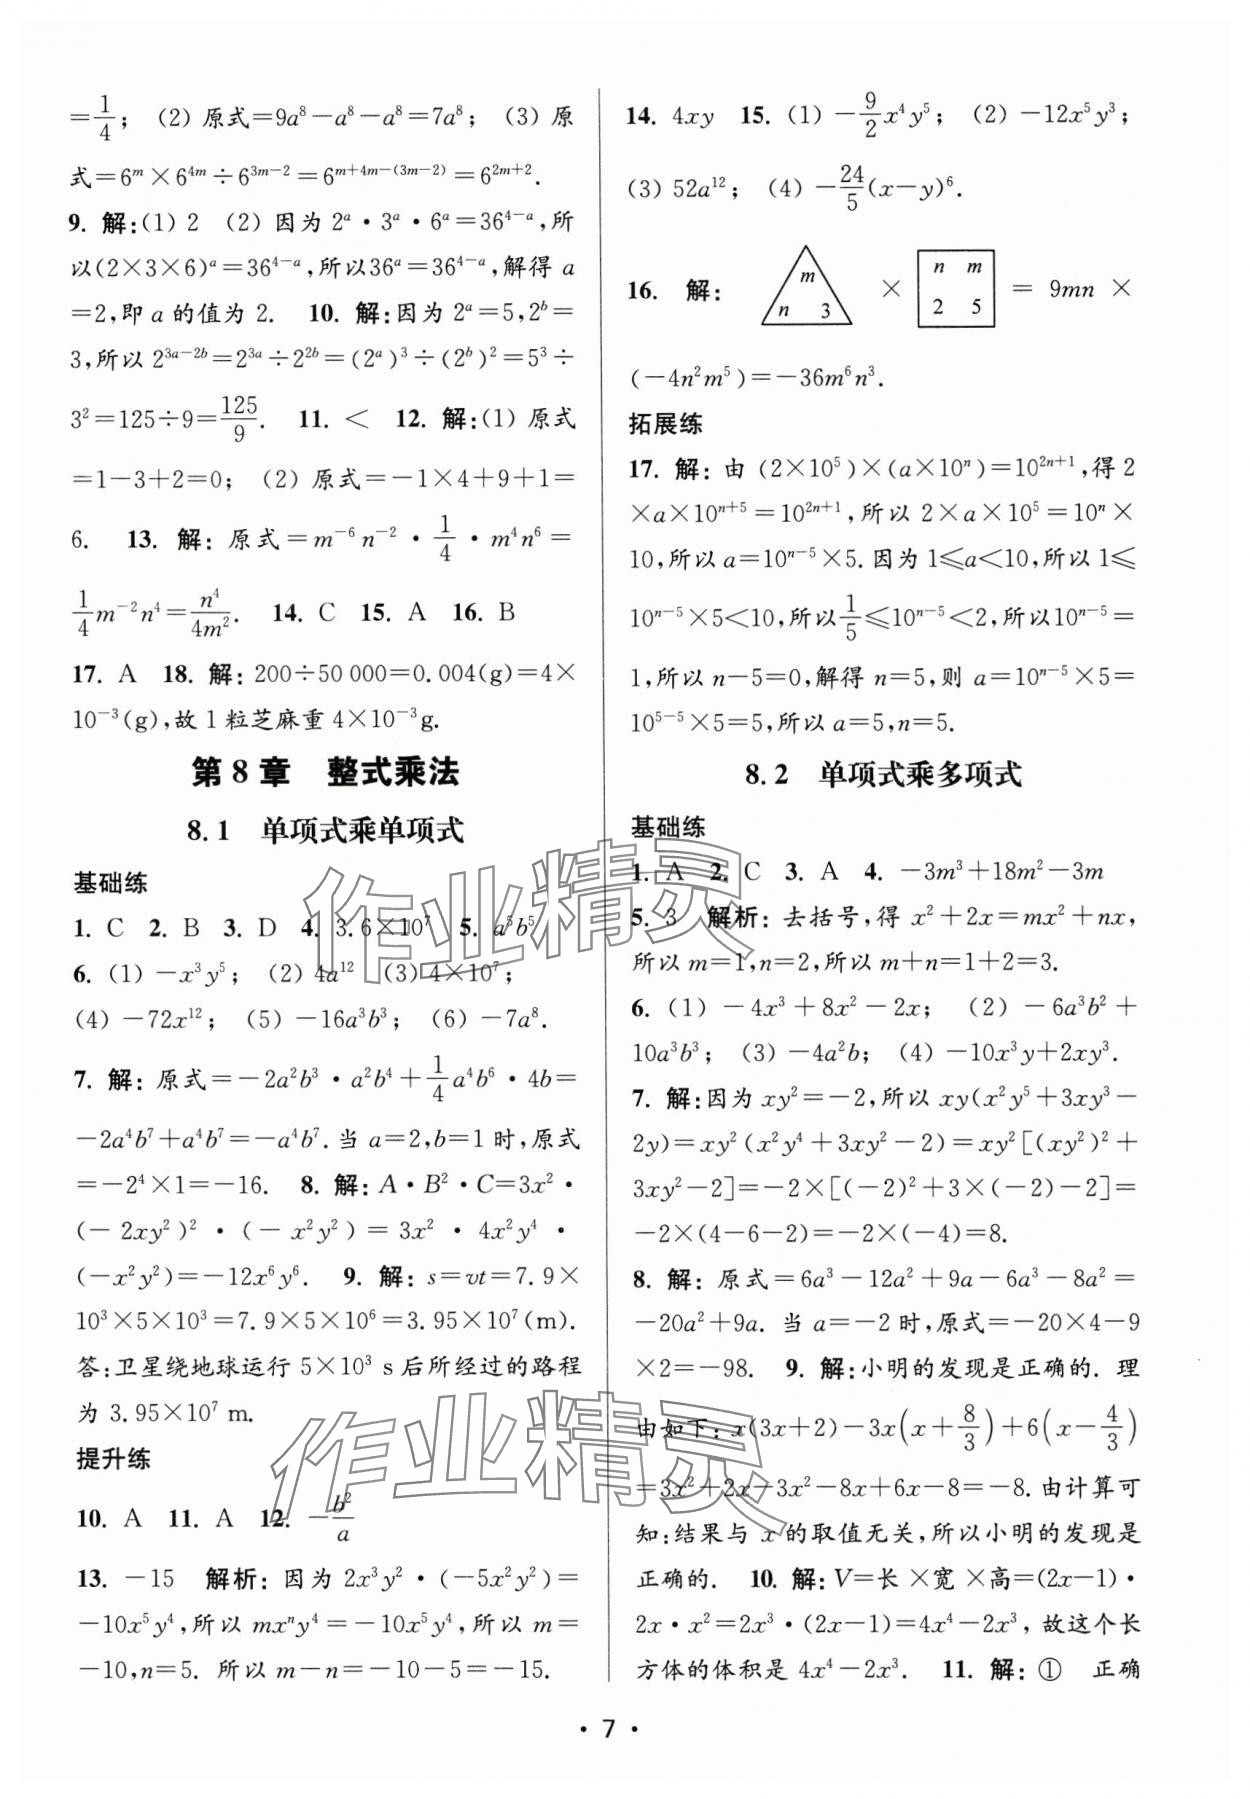 =1/4; (2) 原式=9a⁸-a⁸-a⁸=7a⁸; (3) 原
式=6ᵐ×6⁴ᵐ÷6³ᵐ⁻²=6ᵐ⁺⁴ᵐ⁻⁽³ᵐ⁻²⁾=6²ᵐ⁺².
9. 解:(1) 2 (2) 因为 2ᵃ·3ᵃ·6ᵃ=36⁴⁻ᵃ,所
以(2×3×6)ᵃ=36⁴⁻ᵃ,所以36ᵃ=36⁴⁻ᵃ,解得 a
=2,即 a 的值为 2. 10. 解:因为 2ᵃ=5,2ᵇ=
3,所以 2³ᵃ⁻²ᵇ=2³ᵃ÷2²ᵇ=(2ᵃ)³÷(2ᵇ)²=5³÷
3²=125÷9=125/9. 11. < 12. 解:(1) 原式
=1-3+2=0; (2) 原式=-1×4+9+1=
6. 13. 解: 原式=m⁻⁶n⁻²·1/4·m⁴n⁶=
1/4m⁻²n⁴=n⁴/4m². 14. C 15. A 16. B
17. A 18. 解:200÷50 000=0.004(g)=4×
10⁻³(g),故 1 粒芝麻重 4×10⁻³g.
第 8 章 整式乘法
8.1 单项式乘单项式
基础练
1. C 2. B 3. D 4. 3.6×10⁷ 5. a⁵b⁵
6. (1) -x³y⁵; (2) 4a¹² (3) 4×10⁷;
(4) -72x¹²; (5) -16a³b³; (6) -7a⁸.
7. 解: 原式=-2a²b³·a²b⁴+1/4a⁴b⁶·4b=
-2a⁴b⁷+a⁴b⁷=-a⁴b⁷. 当 a=2,b=1 时,原式
=-2⁴×1=-16. 8. 解:A·B²·C=3x²·
(-2xy²)²·(-x²y²)=3x²·4x²y⁴·
(-x²y²)=-12x⁶y⁶. 9. 解: s=vt=7.9×
10³×5×10³=7.9×5×10⁶=3.95×10⁷(m).
答:卫星绕地球运行 5×10³ s 后所经过的路程
为 3.95×10⁷ m.
提升练
10. A 11. A 12. -b²/a
13. -15 解析: 因为 2x³y²·(-5x²y²)=
-10x⁵y⁴,所以 mxⁿy⁴=-10x⁵y⁴,所以 m=
-10,n=5. 所以 m-n=-10-5=-15.
14. 4xy 15. (1) -9/2x⁴y⁵; (2) -12x⁵y³;
(3) 52a¹²; (4) -24/5(x-y)⁶.
16. 解: m n 3 × n m 2 5 = 9mn ×
(-4n²m⁵)=-36m⁶n³.
拓展练
17. 解: 由 (2×10⁵)×(a×10ⁿ)=10²ⁿ⁺¹,得 2
×a×10ⁿ⁺⁵=10²ⁿ⁺¹,所以 2×a×10⁵=10ⁿ×
10,所以 a=10ⁿ⁻⁵×5. 因为 1≤a<10,所以 1≤
10ⁿ⁻⁵×5<10,所以1/5≤10ⁿ⁻⁵<2,所以10ⁿ⁻⁵=
1,所以 n-5=0,解得 n=5,则 a=10ⁿ⁻⁵×5=
10⁵⁻⁵×5=5,所以 a=5,n=5.
8.2 单项式乘多项式
基础练
1. A 2. C 3. A 4. -3m³+18m²-3m
5. 3 解析: 去括号,得 x²+2x=mx²+nx,
所以 m=1,n=2,所以 m+n=1+2=3.
6. (1) -4x³+8x²-2x; (2) -6a³b²+
10a³b³; (3) -4a²b; (4) -10x³y+2xy³.
7. 解:因为 xy²=-2,所以 xy(x²y⁵+3xy³-
2y)=xy²(x²y⁴+3xy²-2)=xy²[(xy²)²+
3xy²-2]=-2×[(-2)²+3×(-2)-2]=
-2×(4-6-2)=-2×(-4)=8.
8. 解: 原式=6a³-12a²+9a-6a³-8a²=
-20a²+9a. 当 a=-2 时,原式=-20×4-9
×2=-98. 9. 解:小明的发现是正确的. 理
由如下: x(3x+2)-3x(x+8/3)+6(x-4/3)
=3x²+2x-3x²-8x+6x-8=-8. 由计算可
知:结果与 x 的取值无关,所以小明的发现是
正确的. 10. 解:V=长×宽×高=(2x-1)·
2x·x²=2x³·(2x-1)=4x⁴-2x³, 故这个长
方体的体积是 4x⁴-2x³. 11. 解: ① 正确
·7·
作业精灵
作业精灵